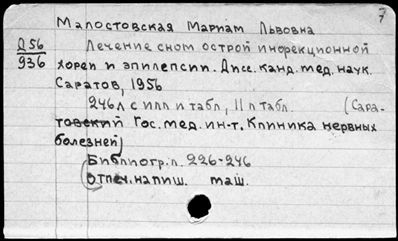 7
Малостовская Мариам Львовна
Д56
936
Лечение сном острой инфекционной
хореи и эпилепсии. Дисс. канд. мед. наук.
Саратов, 1956
246 л с илл и табл, 11 л табл. (Сара-
товский Гос. мед. ин-т. Клиника нервных
болезней)
Библиогр: л. 226-246
Отпеч. напиш. маш.